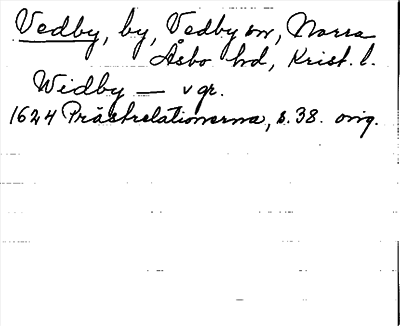 Vedby, by, Vedby sn, Norra
Åsbo hd, Krist. l.
Widby — v gr.
1624 Prästrelationerna, s. 38. orig.